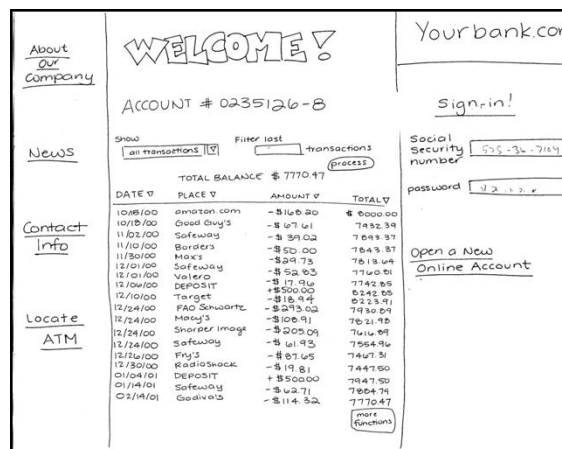 About
our
company
News
Contact
Info
Locate
ATM
WELCOME!
ACCOUNT # 0235126-8
Show
all transactions
Filter last
transactions
process
TOTAL BALANCE $ 7770.47
DATE PLACE AMOUNT TOTAL
10/18/00 amazon.com -$168.20 $ 8000.00
10/18/00 Good Guy's -$ 67.61 7932.39
11/02/00 Safeway -$ 39.02 7893.37
11/10/00 Borders -$50.00 7843.37
11/30/00 Max's -$29.73 7813.64
12/01/00 Safeway -$ 52.83 7760.81
12/01/00 Valero -$ 17.96 7742.85
12/06/00 DEPOSIT +$500.00 8242.85
12/10/00 Target -$18.94 8223.91
12/24/00 FAO Schwartz -$293.02 7930.89
12/24/00 Macy's -$108.91 7821.98
12/24/00 Sharper Image -$205.09 7616.89
12/24/00 Safeway -$ 61.93 7554.96
12/26/00 Fry's -$87.65 7467.31
12/30/00 RadioShack -$ 19.81 7447.50
01/04/01 DEPOSIT +$500.00 7947.50
01/14/01 Safeway -$62.71 7884.79
02/14/01 Godiva's -$114.32 7770.47
more
functions
Yourbank.com
Sign-in!
Social
Security
number
password
Open a New
Online Account